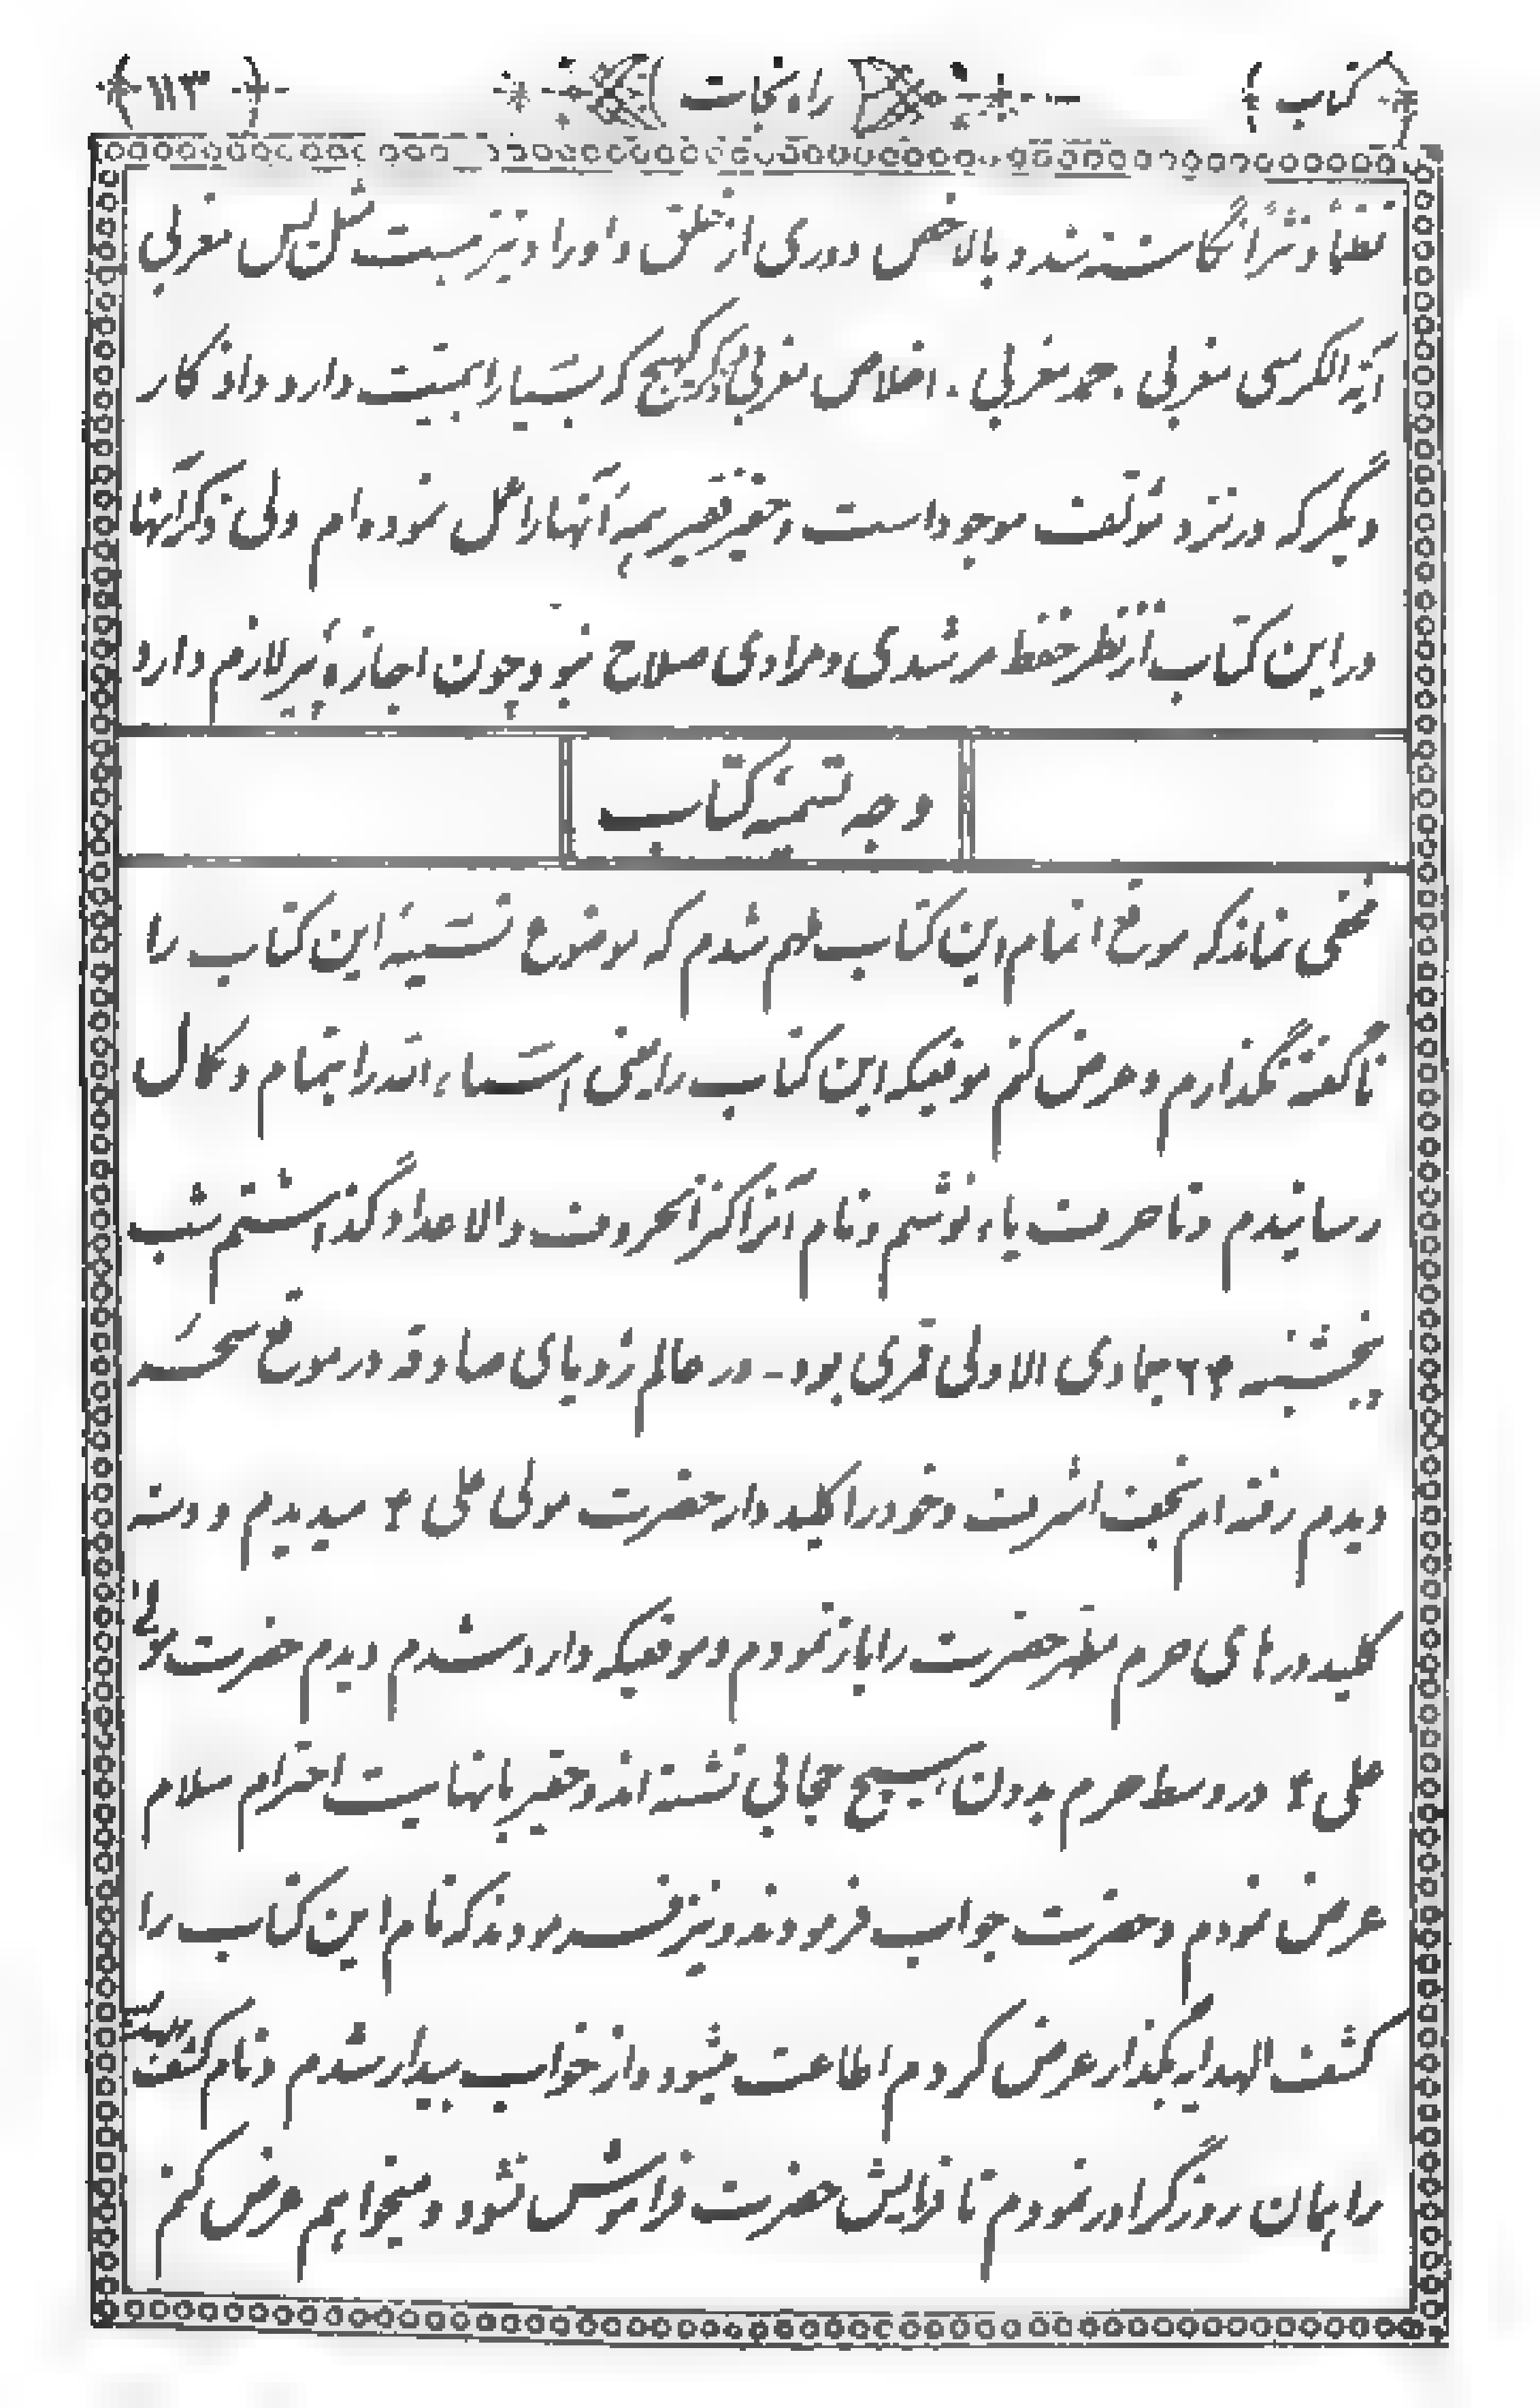 کتاب راه نجات ۱۱۳
نظماً و نثراً نگاشته شد و بالاخص دوری از خلق و اوراد نیز مثل یس مغربی
آیة الکرسی مغربی . حمد مغربی . اخلاص مغربی که بسیار اهمیت دارد و اذکار
دیگر که در نزد مؤلف موجود است و حقیر فقیر همهٔ آنها را عمل نموده‌ام ولی ذکر آنها
در این کتاب از نظر حفظ مرشدی و مرادی صلاح نبود چون اجازهٔ پیر لازم دارد
وجه تسمیهٔ کتاب
مخفی نماند که موقع اتمام این کتاب ملهم شدم که موضوع تسمیهٔ این کتاب را
ناگفته نگذارم و عرض کنم موقعیکه این کتاب را یعنی اسماء الله را بتمام و کمال
رسانیدم و تا حرف یاء نوشتم و نام آنرا کنز الحروف والاعداد گذاشتم شب
پنجشنبه جمادی الاولی قمری بود - در عالم رؤیای صادقه در موقع سحر
دیدم رفته‌ام نجف اشرف و خود را کلید دار حضرت مولی علی ع میدیدم و دسته
کلید درهای حرم مطهر حضرت را باز نمودم و موقعیکه وارد شدم دیدم حضرت مولی
علی ع در وسط حرم بدون هیچ حجابی نشسته‌اند و حقیر با نهایت احترام سلام
عرض نمودم و حضرت جواب فرمودند و نیز فرمودند که نام این کتاب را
کشف الهدایه بگذار عرض کردم اطاعت میشود و از خواب بیدار شدم و نام کشف الهدایه
را همان روز گراور نمودم تا فرمایش حضرت فراموش نشود و میخواهم عرض کنم